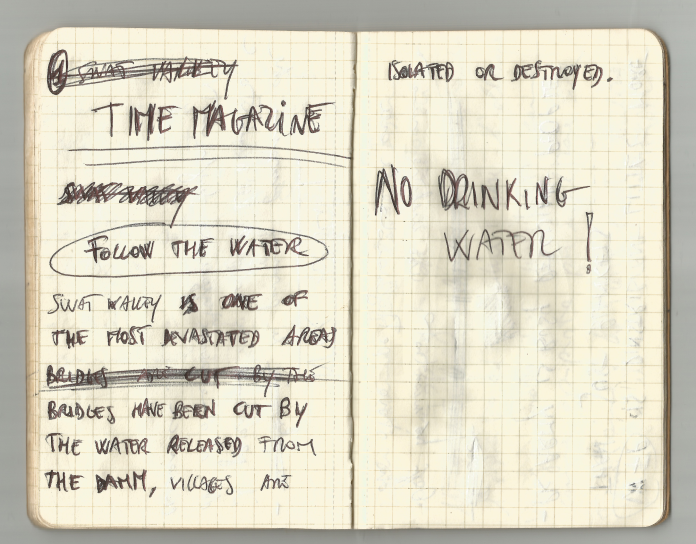 SWAT VALLEY
TIME MAGAZINE
SWAT VALLEY
FOLLOW THE WATER
SWAT VALLEY IS ONE OF
THE MOST DEVASTATED AREAS
BRIDGES ARE CUT BY THE
BRIDGES HAVE BEEN CUT BY
THE WATER RELEASED FROM
THE DAMM, VILLAGES ARE
ISOLATED OR DESTROYED.
NO DRINKING
WATER!